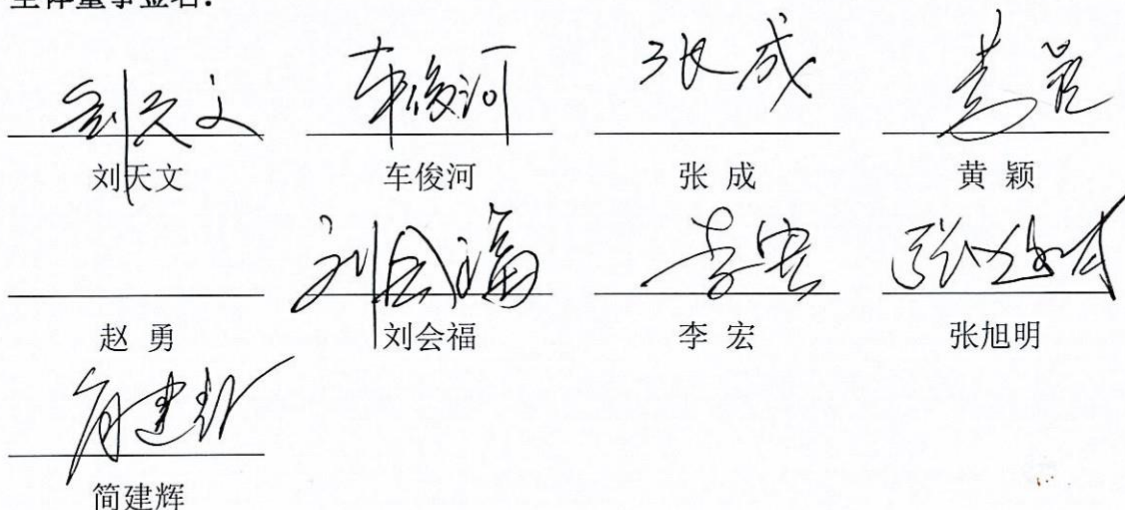 全体董事签名：
刘天文 车俊河 张成 黄颖
刘天文 车俊河 张 成 黄 颖
刘会福 李宏 张旭明
赵 勇 刘会福 李 宏 张旭明
简建辉
简建辉